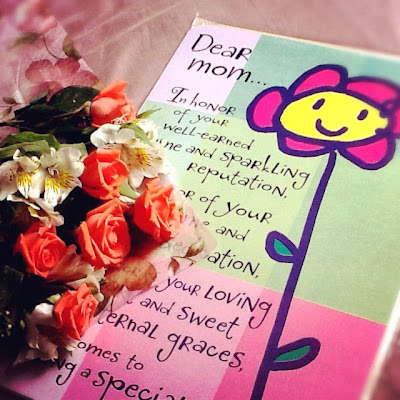 Dear
mom...
In honor
of your
well-earned
and sparkling
reputation,
of your
and
your loving
and sweet
graces,
to
a special